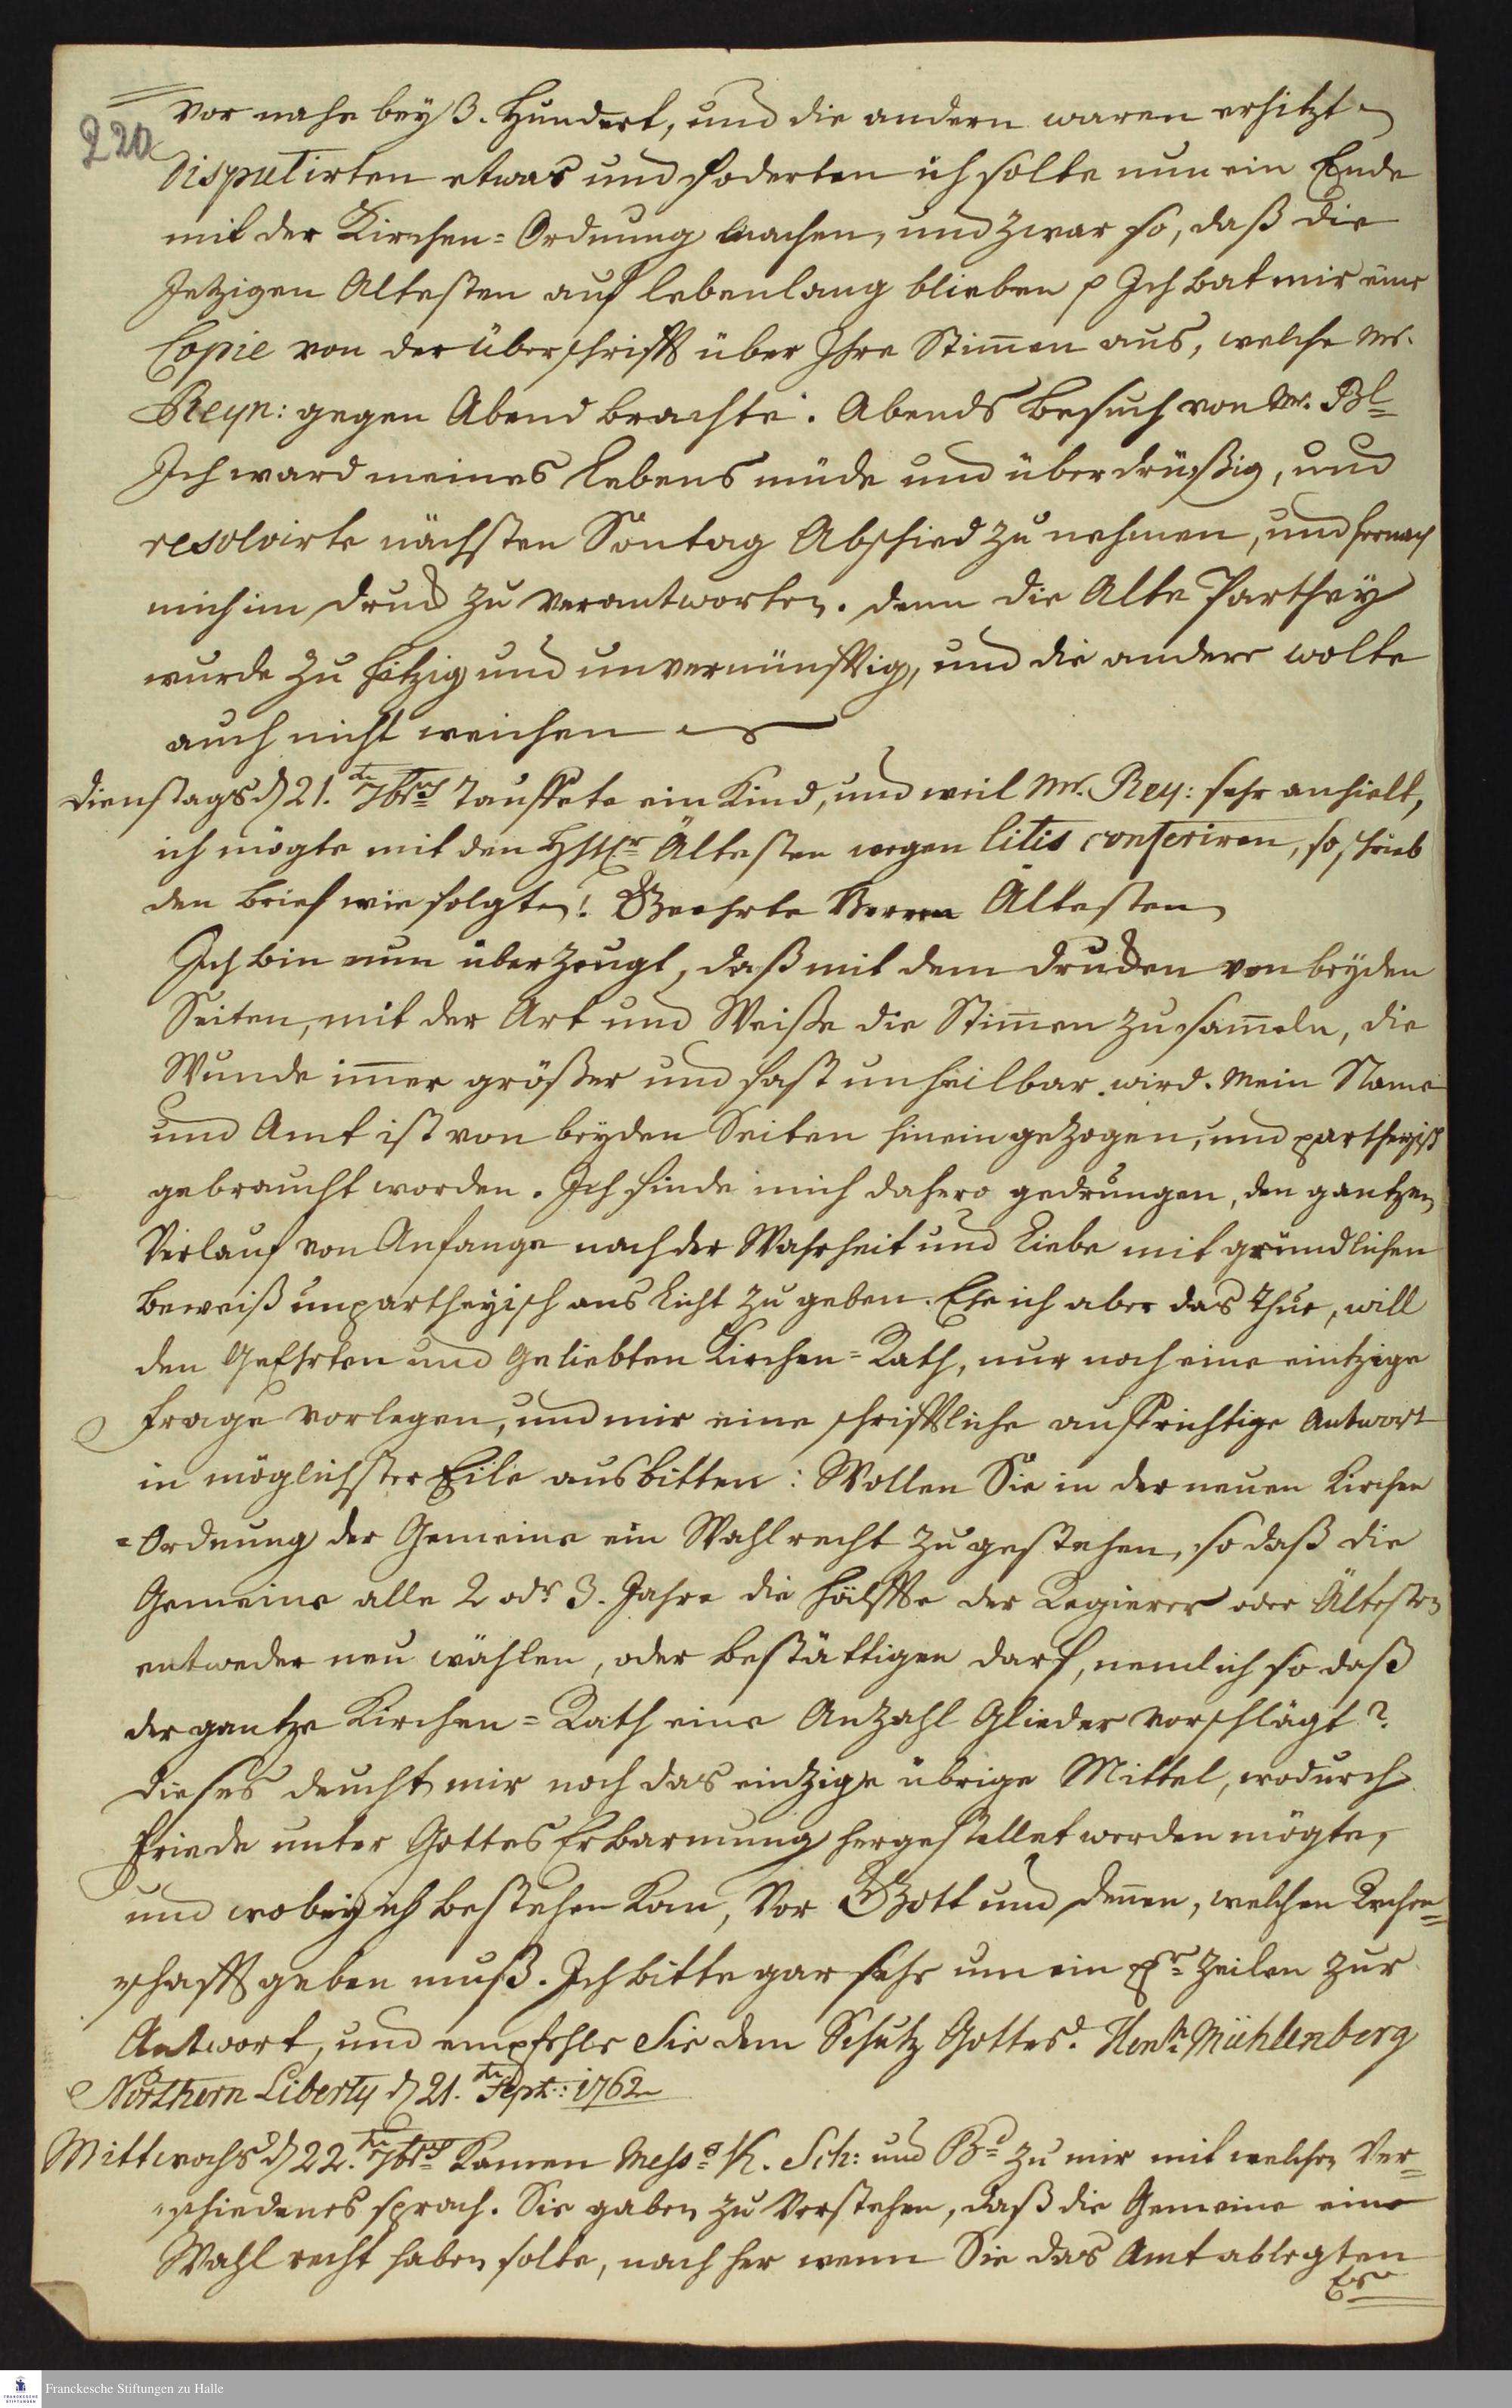 220
vor nahe bey 3. Hundert, und die andern waren erhitzt
disputirten etwas und foderten ich solte nun ein Ende
mit der Kirchen=Ordnung machen, und zwar so, daß die
Jetzigen Altesten auf lebenlang blieben p Ich bat mir eine
Copie von der Überschrifft über Ihre Stim̅en aus, welche Mr.
Reyn: gegen Abend brachte. Abends besuch von Mr. Bl=
Ich ward meines Lebens müde und überdrüßig, und
resolvirte nächsten Sontag Abschied zu nehmen, und hernach
mich im Druck zu verantworten. denn die Alte Parthey
wurde zu hitzig und unvernünfftig, und die andere wolte
auch nicht weichen
Dienstags d 21. ten 7brs tauffete ein Kind, und weil Mr. Rey: sehr anhielt,
ich mögte mit den Ältesten wegen litis conferiren, so schrieb
den brief wie folgt! Geehrte Herren Ältesten
Ich bin nun überzeugt, daß mit dem drucken von beyden
Seiten, mit der Art und Weise die Stim̅en zu sam̅eln, die
Wunde im̅er größer und fast unheilbar wird. Mein Name
und Amt ist von beyden Seiten hinein gezogen, und partheyisch
gebraucht worden. Ich finde mich dahero gedrungen, den gantzen
Verlauf von Anfange nach der Wahrheit und Liebe mit gründlichen
beweiß unpartheyisch ans Licht zu geben. Ehe ich aber das thue, will
den geEhrten und Geliebten Kirchen=Rath, nur noch eine eintzige
frage vorlegen, und mir eine schrifftliche auffrichtige Antwort
in möglichster Eile ausbitten: Wollen Sie in der neuen Kirchen
=Ordnung der Gemeine ein Wahlrecht zu gestehen, so daß die
Gemeine alle 2 odr 3. Jahre die Hälffte der Regierer oder Ältesten
entweder neu wählen, oder bestättigen darf, nemlich so daß
der gantze Kirchen=Rath eine Anzahl Glieder vorschlägt?
dieses deucht mir noch das eintzige übrige Mittel, wodurch
Friede unter Gottes Erbarmung hergestellet werden mögte,
und wobey ich bestehen kan, vor Gott und denen, welchen Rechen=
schafft geben muß. Ich bitte gar sehr um ein pr Zeilen zur
Antwort, und empfehle Sie dem Schutz Gottes. Henr: Mühlenberg
Northern Liberty d 21. ten Sept: 1762
Mittwochs d 22. ten 7brs kamen Mess=s K. Sch: und Bd zu mir mit welchen Ver=
schiedenes sprach. Sie gaben zu verstehen, daß die Gemeine eine
Wahl recht haben solte, nach her wenn Sie das Amt ablegten
Franckesche Stiftungen zu Halle